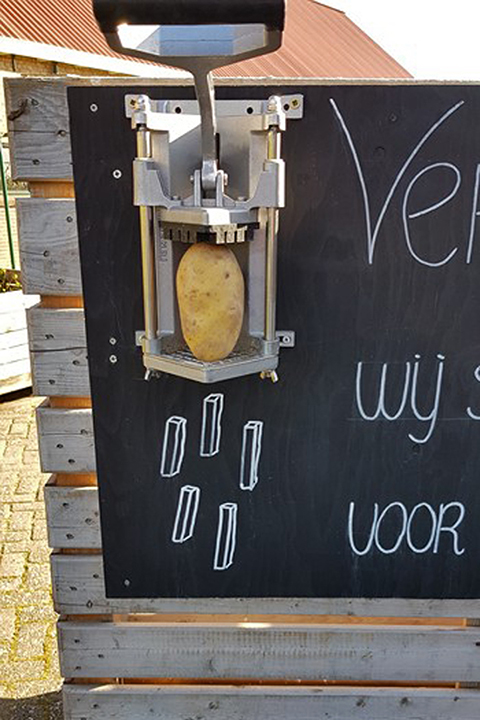 Ver
wij s
voor